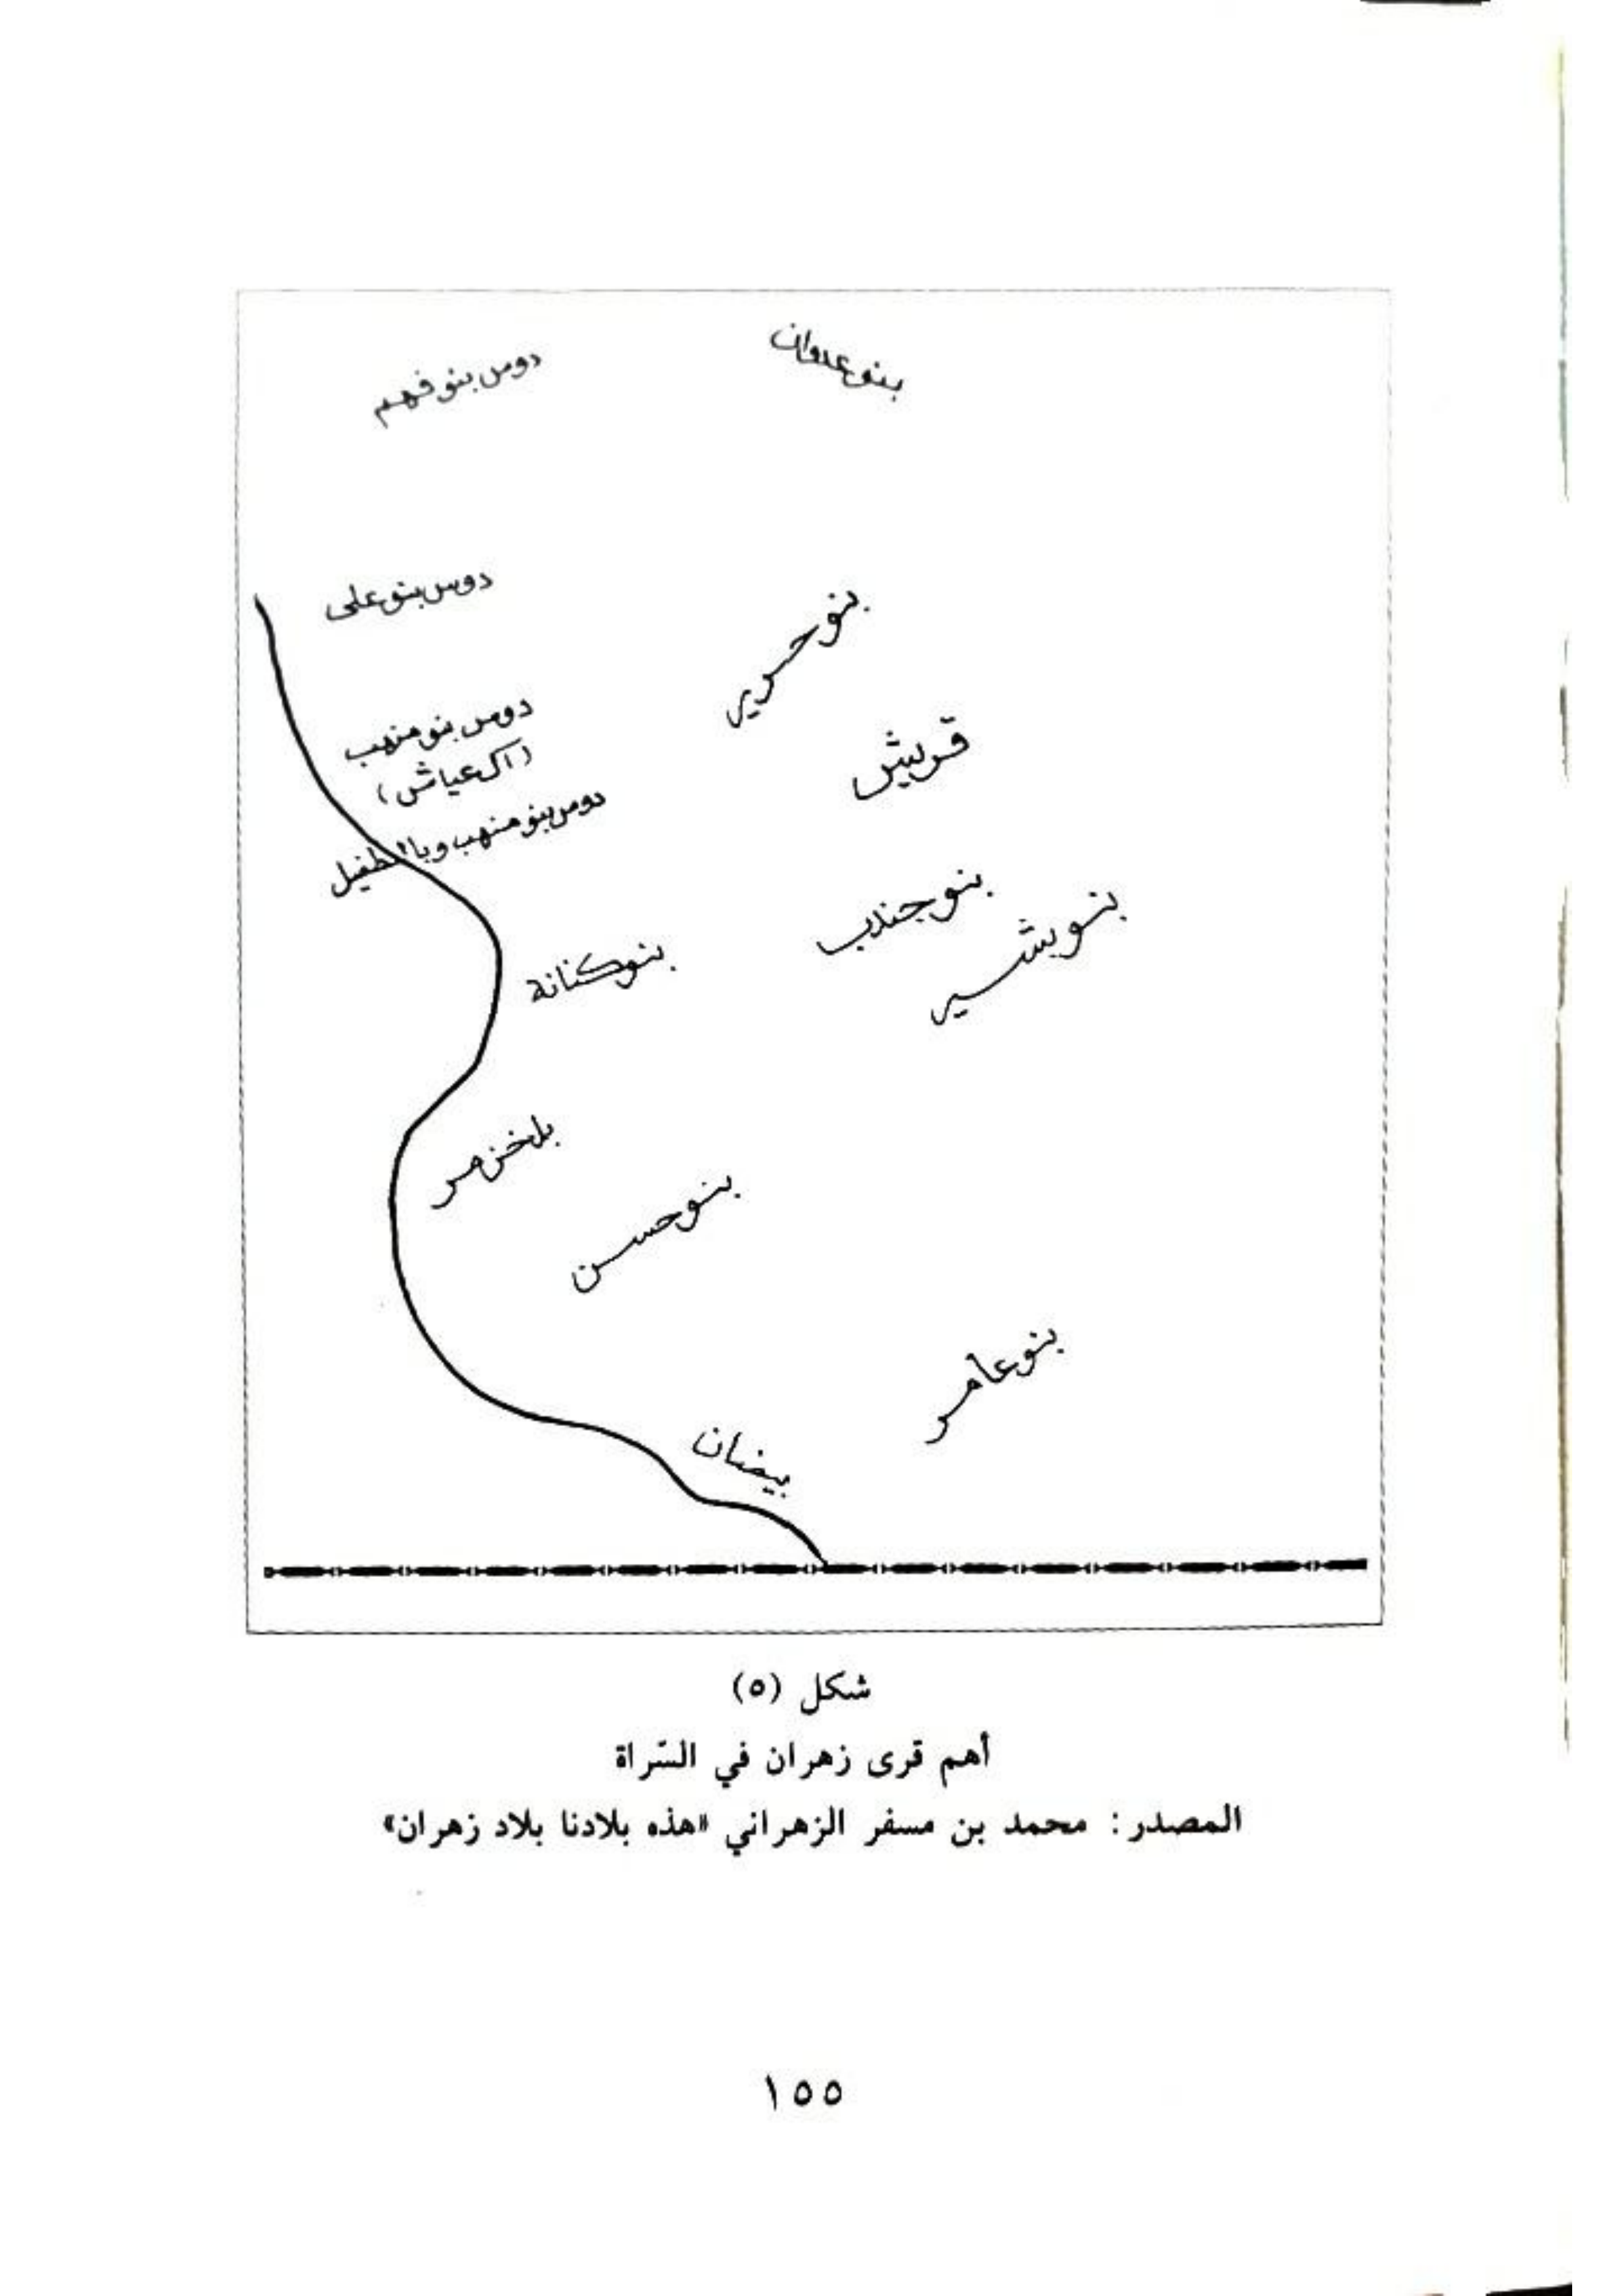 بنو عدوان
دوس بنو فهم
دوس بنو على
بنو حرير
دوس بنو منهب
(آل عياش)
قريش
دوس بنو منهب وبا الطفيل
بنو جندب
بنو بشير
بنو كنانة
بلخزمر
بنو حسن
بنو عامر
بيضان
شكل (٥)
أهم قرى زهران في السّراة
المصدر : محمد بن مسفر الزهراني «هذه بلادنا بلاد زهران»
١٥٥